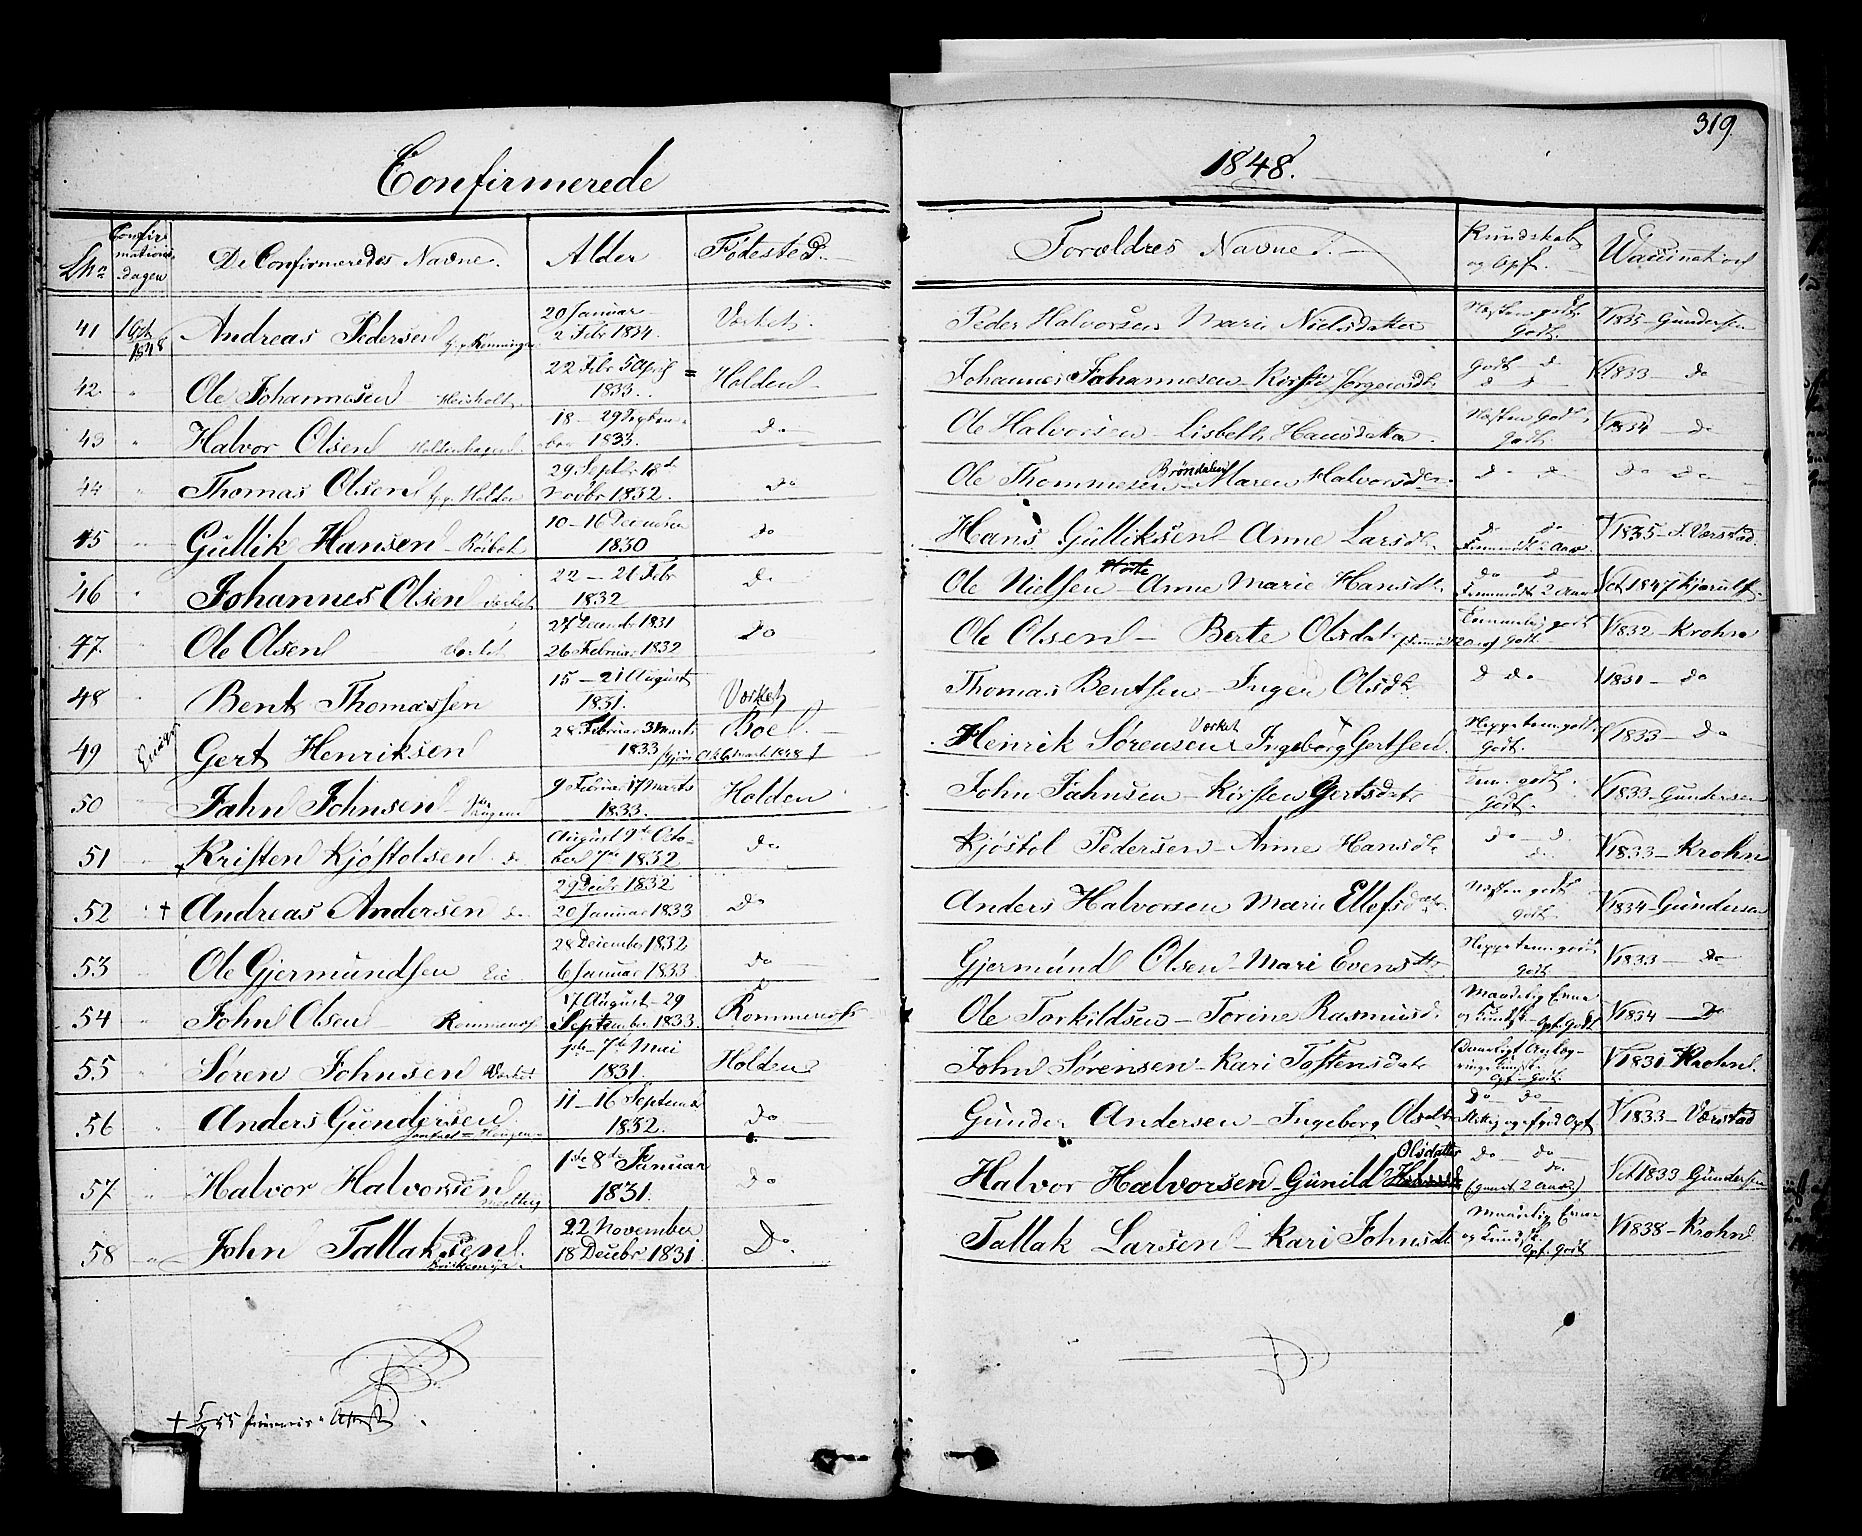 319
Confirmerede
1848.
Confir-
mations
dagen
De Confirmeredes Navne.
Alder
Fødested.
Forældres Navne.
Kundskab
og Opf.
Waccination
41 1 Octb 1848 Andreas Pedersen 20 Januar 2 Febr 1834. Værket. Peder Halvorsen Marie Nielsdatter Næsten godt Godt. V 1835 - Gundersen
42 " Ole Johannesen 22 Febr 5 April 1833. Holden Johannes Johannesen - Kirstie Jørgensdtr Godt do do do V 1833 - do
43 " Halvor Olsen Holdenhagen 18 - 29 Septem- ber 1833. do Ole Halvorsen - Lisbeth Hansdatter. Næsten Godt, Godt. V 1834 do
44 " Thomas Olsen Holden 29 Septbr 18de Novbr 1832. do Ole Thommesen Brøndalen Maren Halvorsdtr do do do do
45 " Gullik Hansen 10 - 16 December 1830 do Hans Gulliksen Anne Larsdtr do do V 1835 - J. Værstad.
46 " Johannes Olsen Værket 22 - 26 Febr 1832 do Ole Nielsen Anne Marie Hansdtr. do do 1847 Kjerulf.
47 " Ole Olsen Værket 27 Decembr 1831 26 Februar 1832 do Ole Olsen - Berte Olsdatr godt V 1832 - Krohn
48 " Bent Thomassen 15 - 21 August 1831. Værket Thomas Bentsen - Inger Olsdtr. do do V 1831 - do
49 Gert Henriksen 28 Februar 3 Marts 1833 Boel. Henrik Sørensen Værket Ingeborg Gertsen. godt. V 1833 - do
50 " Jahn Johnsen 9 Februar 17 Marts 1833. Holden John Jahnsen - Kirsten Gertsdatr Tem. godt Godt. V 1833 - Gundersen
51 " Kristen Kjøstolsen do August 9de Octo- ber 7de 1832 do Kjøstol Pedersen - Anne Hansdtr do do do V 1833 - Krohn
52 " + Andreas Andersen do 29 Decbr 1832 20 Januar 1833 do Anders Halvorsen Marie Ellefsdatr. Næsten godt godt. V 1834 - Gundersen
53 " Ole Gjermundsen Eie 28 December 1832 6 Januar 1833. do Gjermund Olsen - Mari Evensdtr godt V 1833 - do
54 " John Olsen Rommenæs 17 August - 29 September 1833. Rommenæs Ole Torkildsen - Torine Rasmusd. Maadelig Evne og Kundsk. Opf. Godt V 1834 - do
55 " Søren Johnsen Værket 1ste - 7de Mai 1831. Holden John Sørensen - Kari Tostensdatr Opf - Godt. V 1831 Krohn.
56 " Anders Gundersen 11 - 16 September 1832. do Gunder Andersen - Ingeborg Olsdatr do do Opf. V 1833 - Værstad
57 " Halvor Halvorsen 1ste 8de Januar 1831. do Halvor Halvorsen - Gunild Olsdatter do do do 1833 Gundersen
58 " John Tallaksen. 22 November 18 Decbr 1831. Do. Tallak Larsen - Kari Johnsdtr Maadelig Evne og Kundsk. Opf. godt V 1838 - Krohn
+ 5/7 55 Attest